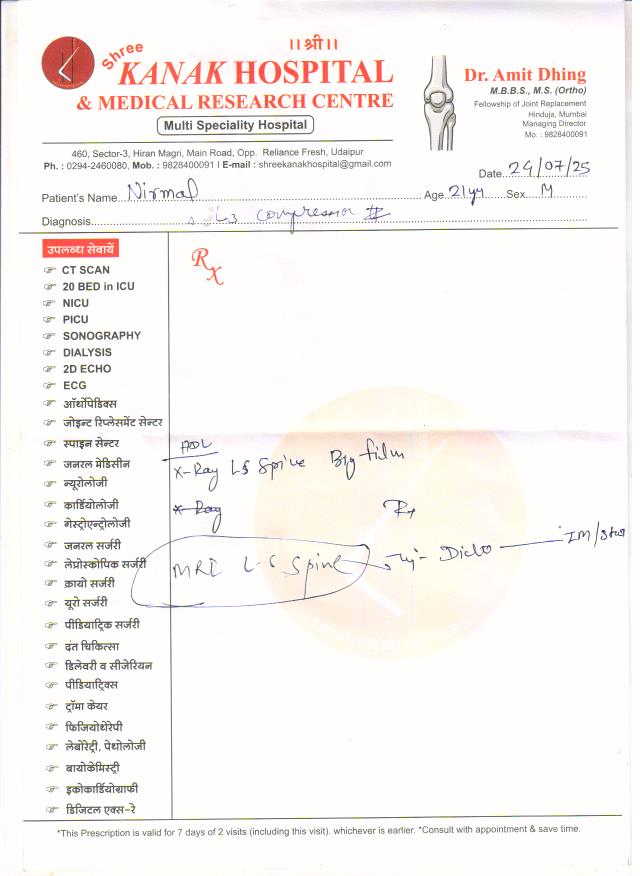 ।।श्री।।
Shree
KANAK HOSPITAL
& MEDICAL RESEARCH CENTRE
Multi Speciality Hospital
460, Sector-3, Hiran Magri, Main Road, Opp. Reliance Fresh, Udaipur
Ph. : 0294-2460080, Mob. : 9828400091 I E-mail : shreekanakhospital@gmail.com
Dr. Amit Dhing
M.B.B.S., M.S. (Ortho)
Fellowship of Joint Replacement
Hinduja, Mumbai
Managing Director
Mo. : 9828400091
Date 24/07/25
Patient's Name Nirmal Age 21yr Sex M
Diagnosis L3 compression #
उपलब्ध सेवायें
CT SCAN
20 BED in ICU
NICU
PICU
SONOGRAPHY
DIALYSIS
2D ECHO
ECG
ऑर्थोपेडिक्स
जोइन्ट रिप्लेसमेंट सेन्टर
स्पाइन सेन्टर
जनरल मेडिसीन
न्यूरोलोजी
कार्डियोलोजी
गेस्ट्रोएन्ट्रोलोजी
जनरल सर्जरी
लेप्रोस्कोपिक सर्जरी
क्रायो सर्जरी
यूरो सर्जरी
पीडियाट्रिक सर्जरी
दंत चिकित्सा
डिलेवरी व सीजेरियन
पीडियाट्रिक्स
ट्रॉमा केयर
फिजियोथेरेपी
लेबोरेट्री, पेथोलोजी
बायोकेमिस्ट्री
इकोकार्डियोग्राफी
डिजिटल एक्स-रे
Rx
X-Ray LS Spine Big film
X-Ray
Rx
MRI L-S Spine
Inj- Diclo IM/Stat
rejuvenating lives
*This Prescription is valid for 7 days of 2 visits (including this visit). whichever is earlier. *Consult with appointment & save time.